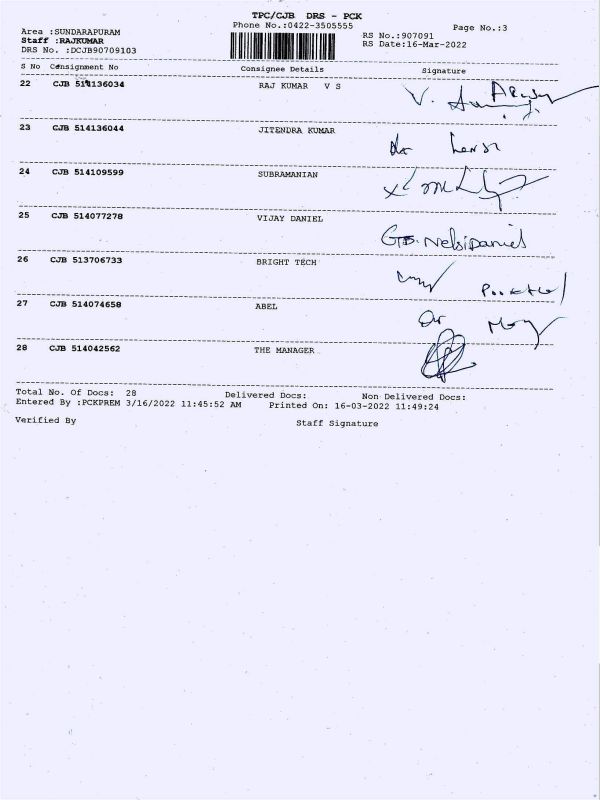 TPC/CJB DRS - PCK
Area :SUNDARAPURAM
Phone No.:0422-3505555
Page No.:3
Staff :RAJKUMAR
RS No.:907091
DRS No. :DCJB90709103
RS Date:16-Mar-2022
S No Consignment No Consignee Details Signature
22 CJB 514136034 RAJ KUMAR V S V.
23 CJB 514136044 JITENDRA KUMAR
24 CJB 514109599 SUBRAMANIAN
25 CJB 514077278 VIJAY DANIEL
26 CJB 513706733 BRIGHT TECH
27 CJB 514074658 ABEL
28 CJB 514042562 THE MANAGER
Total No. Of Docs: 28 Delivered Docs: Non Delivered Docs:
Entered By :PCKPREM 3/16/2022 11:45:52 AM Printed On: 16-03-2022 11:49:24
Verified By Staff Signature